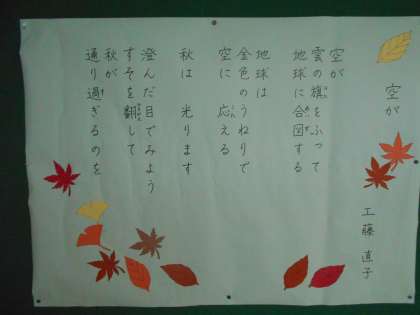 空が
工藤 直子
空が
雲の旗をふって
地球に合図する
地球は
金色のうねりで
空に 応える
秋は 光ります
澄んだ目でみよう
すそを翻して
秋が
通り過ぎるのを